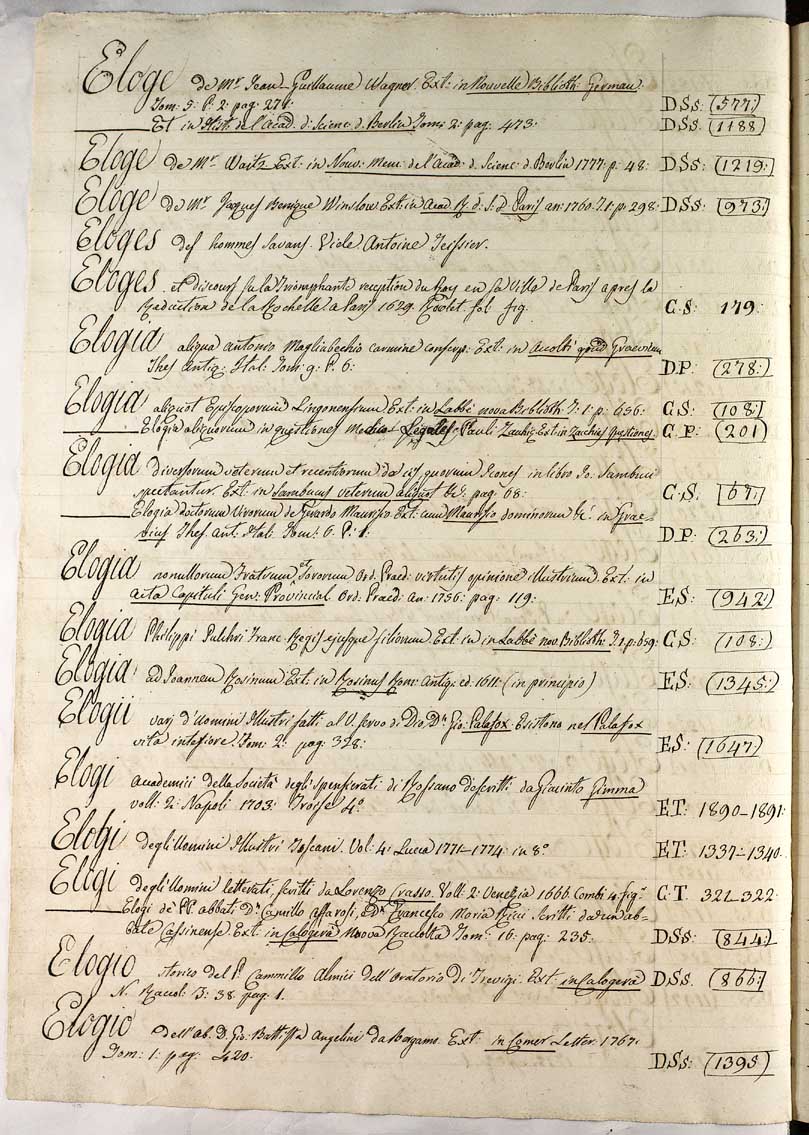 Eloge de Mr. Jean-Guillaume Wagner. Ext: in Nouvelle Biblioth: German.
Tom: 5. P. 2. pag: 271: D.Ss: (577:)
Et in Hist. de l'Acad: d: Scienc: d: Berlin Tom: 2: pag: 473: D.Ss: (1188)
Eloge de Mr. Waitz Ext: in Nouv: Mem: de l'Acad: d. Scienc: d. Berlin 1777: p: 48: D.Ss: (1219:)
Eloge de Mr. Jaques Benigne Winslow. Ext: in Acad. R. d. S. d. Paris an: 1760. T. 1: p: 298: D.Ss: (973:)
Eloges des hommes savans. Vide Antoine Teissier.
Eloges et discours su la Triomphante reception du Roy en sa Ville de Paris apres la
Reduction de la Rochelle a Paris 1629. Rovlet. fol. fig. C.S: 179:
Elogia aliqua Antonio Magliabechio carmine Ext: in Accolti Graevium
Thes. Antiq: Ital: Tom: 9: P. 6: D.P: (278:)
Elogia aliquot Episcoporum Lingonensium Ext: in Labbè nova Biblioth: T. 1: p: 656: C.S: (108:)
Elogia aliquorum in questiones Medico Legales, Pauli Zachiæ Ext: in Zachias Questiones. C.P: (201)
Elogia diversorum veterum et recentiorum de iis quorum Icones in libro Jo. Sambuci
spectantur. Ext: in Sambucus veterum aliquot &c: pag: 68: C.S. (67:)
Elogia doctorum Virorum de Gerardo Maurisio. Ext: cum Maurisio dominorum &c. in Grae-
vius Thes. Ant. Ital. Tom: 6. P: 1: D.P: (263:)
Elogia nonullorum Fratrum et Sororum Ord. Praed: virtutis opinione illustrium. Ext: in
acta Capituli Gen: Provincial Ord: Praed: an: 1756: pag: 119: E.S: (942:)
Elogia Philippi Pulchri Franc. Regis ejusque filiorum Ext: in in Labbè nov: Biblioth: T. 1. p: 659: C.S: (108:)
Elogia ad Joannem Rosinum Ext: in Rosinus Rom: Antiq: ed: 1611: (in principio) E.S: (1345:)
Elogii varj d'Uomini Illustri fatti al V. Servo di Dio, Dn. Gio: Palafox. Esistono nel Palafox
vita interiore. Tom: 2: pag: 328: E.S: (1647:)
Elogi Accademici della Società degli Spensierati di Rossano descritti da Giacinto Gimma
voll: 2: Napoli 1703: Troise 4.o E.T: 1890-1891:
Elogi degli Uomini Illustri Toscani. Vol: 4: Lucca 1771-1774: in 8.o E.T: 1337-1340.
Elogi degli Uomini letterati, scritti da Lorenzo Crasso. Voll: 2: Venezia 1666. Combi 4. fig.o C.T. 321-322:
Elogi de' PP. abbati Dn. Camillo Affarosi, e Dn. Francesco Maria Ricci scritti da un ab-
bate Cassinense. Ext. in Calogerà Nuova Raccolta Tom: 16: pag: 235: D.Ss: (844:)
Elogio storico del P. Cammillo Almici dell'Oratorio di Trevigi. Ext: in Calogerà D.Ss: (866:)
N. Raccol: T: 38 pag: 1.
Elogio dell'Ab. D. Gio: Battista Angelini da Bergamo. Ext: in Comer Letter. 1767:
Tom: 1: pag: 420: D.Ss: (1395)